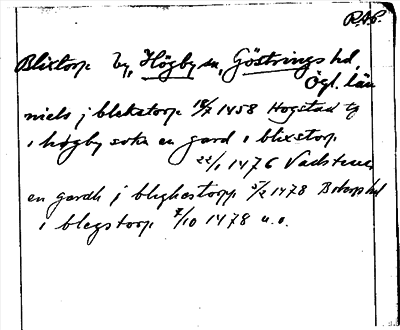 R.A.P.
Blixtorp by, Högby sn, Göstrings hd,
Ögl. län
niels j blekstorp 18/7 1458 Hogstad tg
i högby sokn en gard i blixstorp
22/1 1476 Vadstena
en gardh j bleghastorpp 3/2 1478 Bobergs hd
i blegstorp 7/10 1478 u.o.